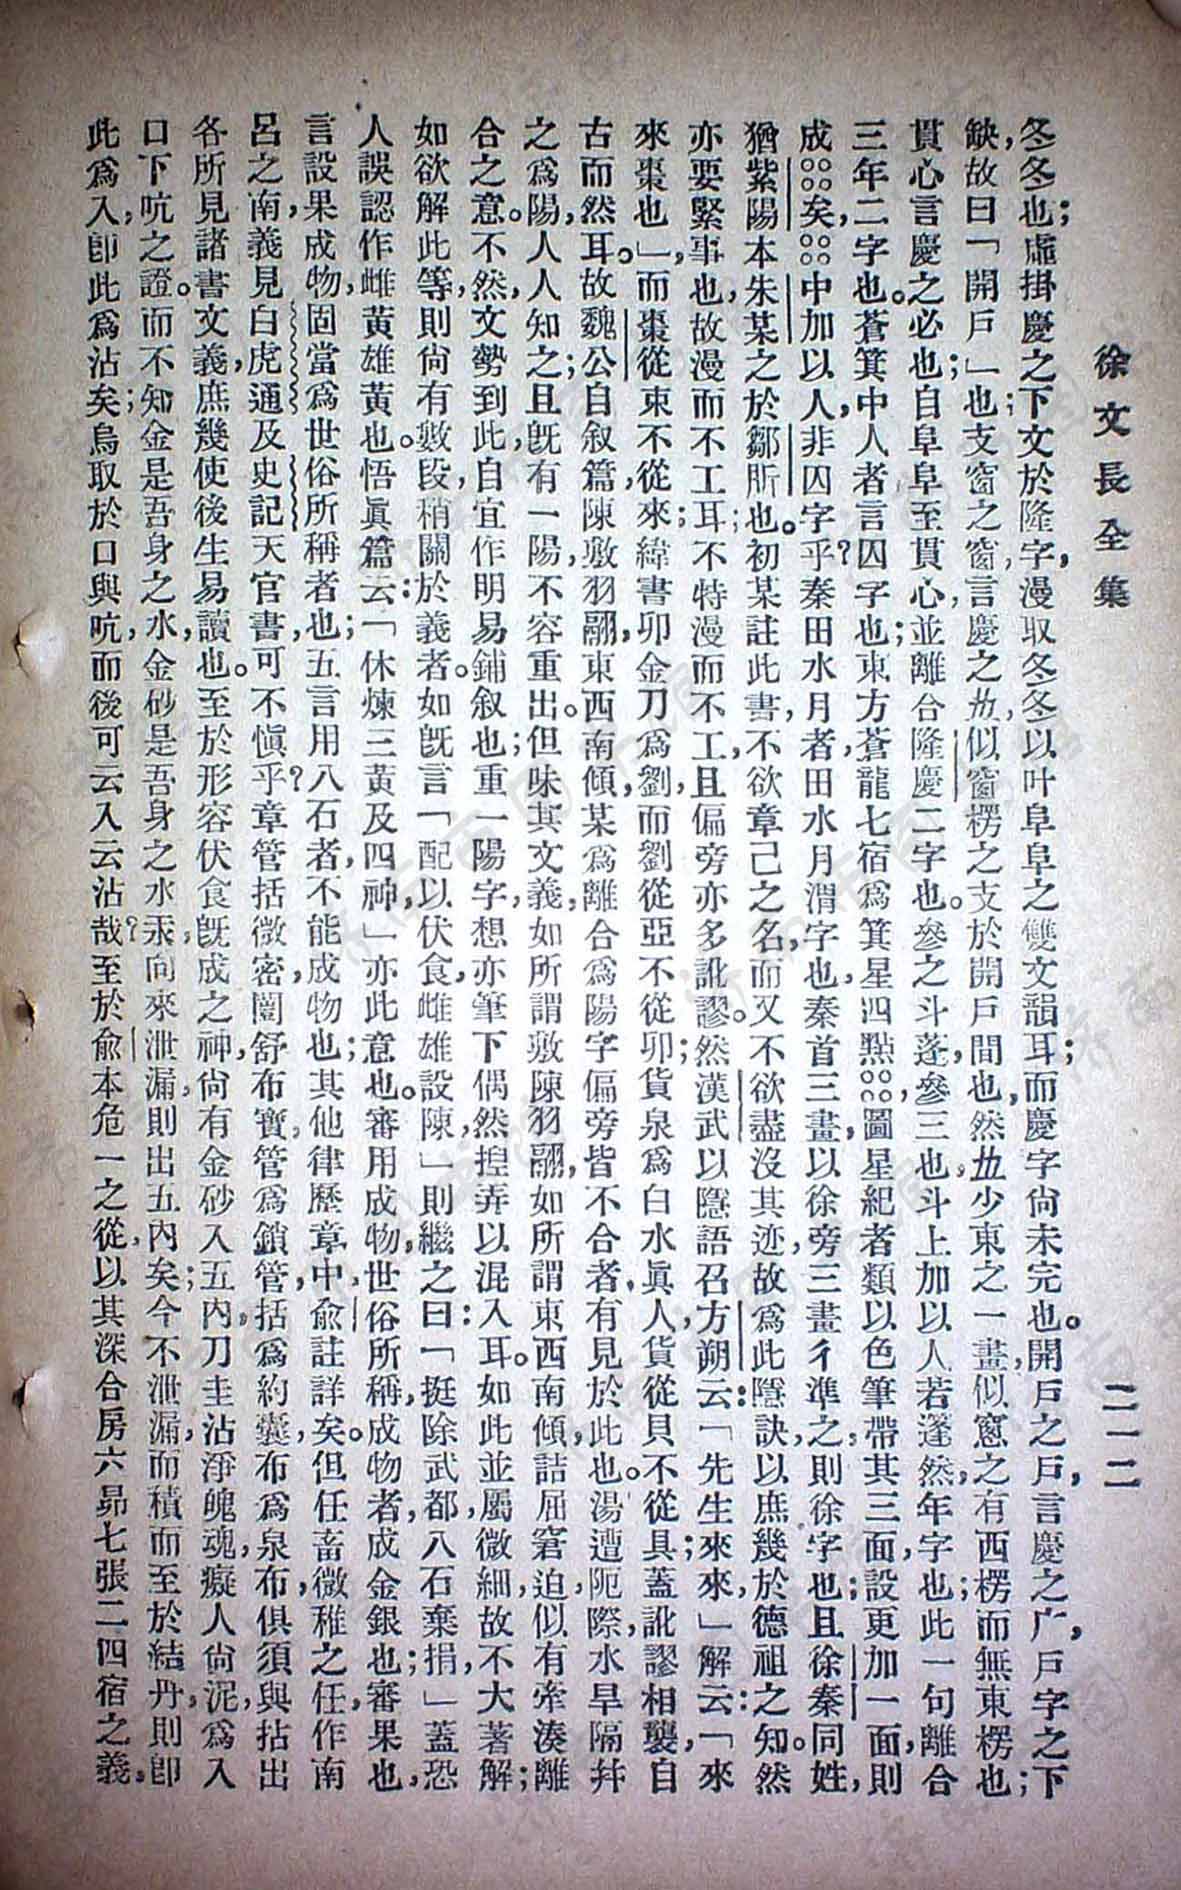 徐文長全集
二一二
冬冬也；虛掛慶之下文於隆字，漫取冬冬以叶阜阜之雙文韻耳；而慶字尙未完也。開戶之戶，言慶之广，戶字之下
缺，故曰「開戶」也；支窗之窗，言慶之𠀎，似窗楞之支於開戶間也，然𠀎少東之一畫，似窻之有西楞而無東楞也；
貫心言慶之必也；自阜阜至貫心，並離合隆慶二字也。參之斗蓬，參三也，斗上加以人若蓬然，年字也；此一句離合
三年二字也。蒼箕中人者，言囚字也；東方蒼龍七宿爲箕星四點○○○○，圖星紀者類以色筆帶其三面，設更加一面，則
成○○○○矣，○○○○中加以人，非囚字乎？秦田水月者，田水月，渭字也，秦首三畫，以徐旁三畫彳準之，則徐字也；且徐秦同姓，
猶紫陽本朱某之於鄒訢也。初某註此書，不欲章己之名，而又不欲盡沒其迹，故爲此隱訣，以庶幾於德祖之知。然
亦要緊事也，故漫而不工耳；不特漫而不工，且偏旁亦多訛謬。然漢武以隱語召方朔云：「先生來來」解云：「來
來棗也」，而棗從朿不從來，緯書卯金刀爲劉，而劉從亞不從卯；貨泉爲白水眞人，貨從貝不從具；蓋訛謬相襲，自
古而然耳。故魏公自叙篇，陳敷羽翮，東西南傾，某爲離合爲陽字偏旁皆不合者，有見於此也。湯遭阨際，水旱隔幷
之爲陽，人人知之；且旣有一陽，不容重出；但味其文義，如所謂敷陳羽翮，如所謂東西南傾，詰屈窘迫，似有牽湊離
合之意。不然，文勢到此，自宜作明易鋪叙也；重一陽字，想亦筆下偶然揑弄以混入耳。如此並屬微細，故不大著解；
如欲解此等，則尙有數段，稍關於義者。如旣言「配以伏食，雌雄設陳」則繼之曰：「挺除武都，八石棄捐」，蓋恐
人誤認作雌黃雄黃也。悟眞篇云：「休煉三黃及四神，」亦此意也。審用成物，世俗所稱，成物者，成金銀也；審果也，
言設果成物，固當爲世俗所稱者也；五言用八石者，不能成物也；其他律歷章中，俞註詳矣。但任畜微稚之任，作南
呂之南，義見白虎通及史記天官書，可不愼乎？章管括微密，闓舒布寶，管爲鎖管，括爲約囊，布爲泉布，俱須與拈出
各所見諸書文義，庶幾使後生易讀也。至於形容伏食旣成之神，尙有金砂入五內，刀圭沾淨魄魂，癡人尙泥爲入
口下吭之證。而不知金是吾身之水，金砂是吾身之水汞，向來泄漏，則出五內矣；今不泄漏，而積而至於結丹，則卽
此爲入，卽此爲沾矣；烏取於口與吭，而後可云入云沾哉？至於俞本危一之從，以其深合房六昴七張二四宿之義，